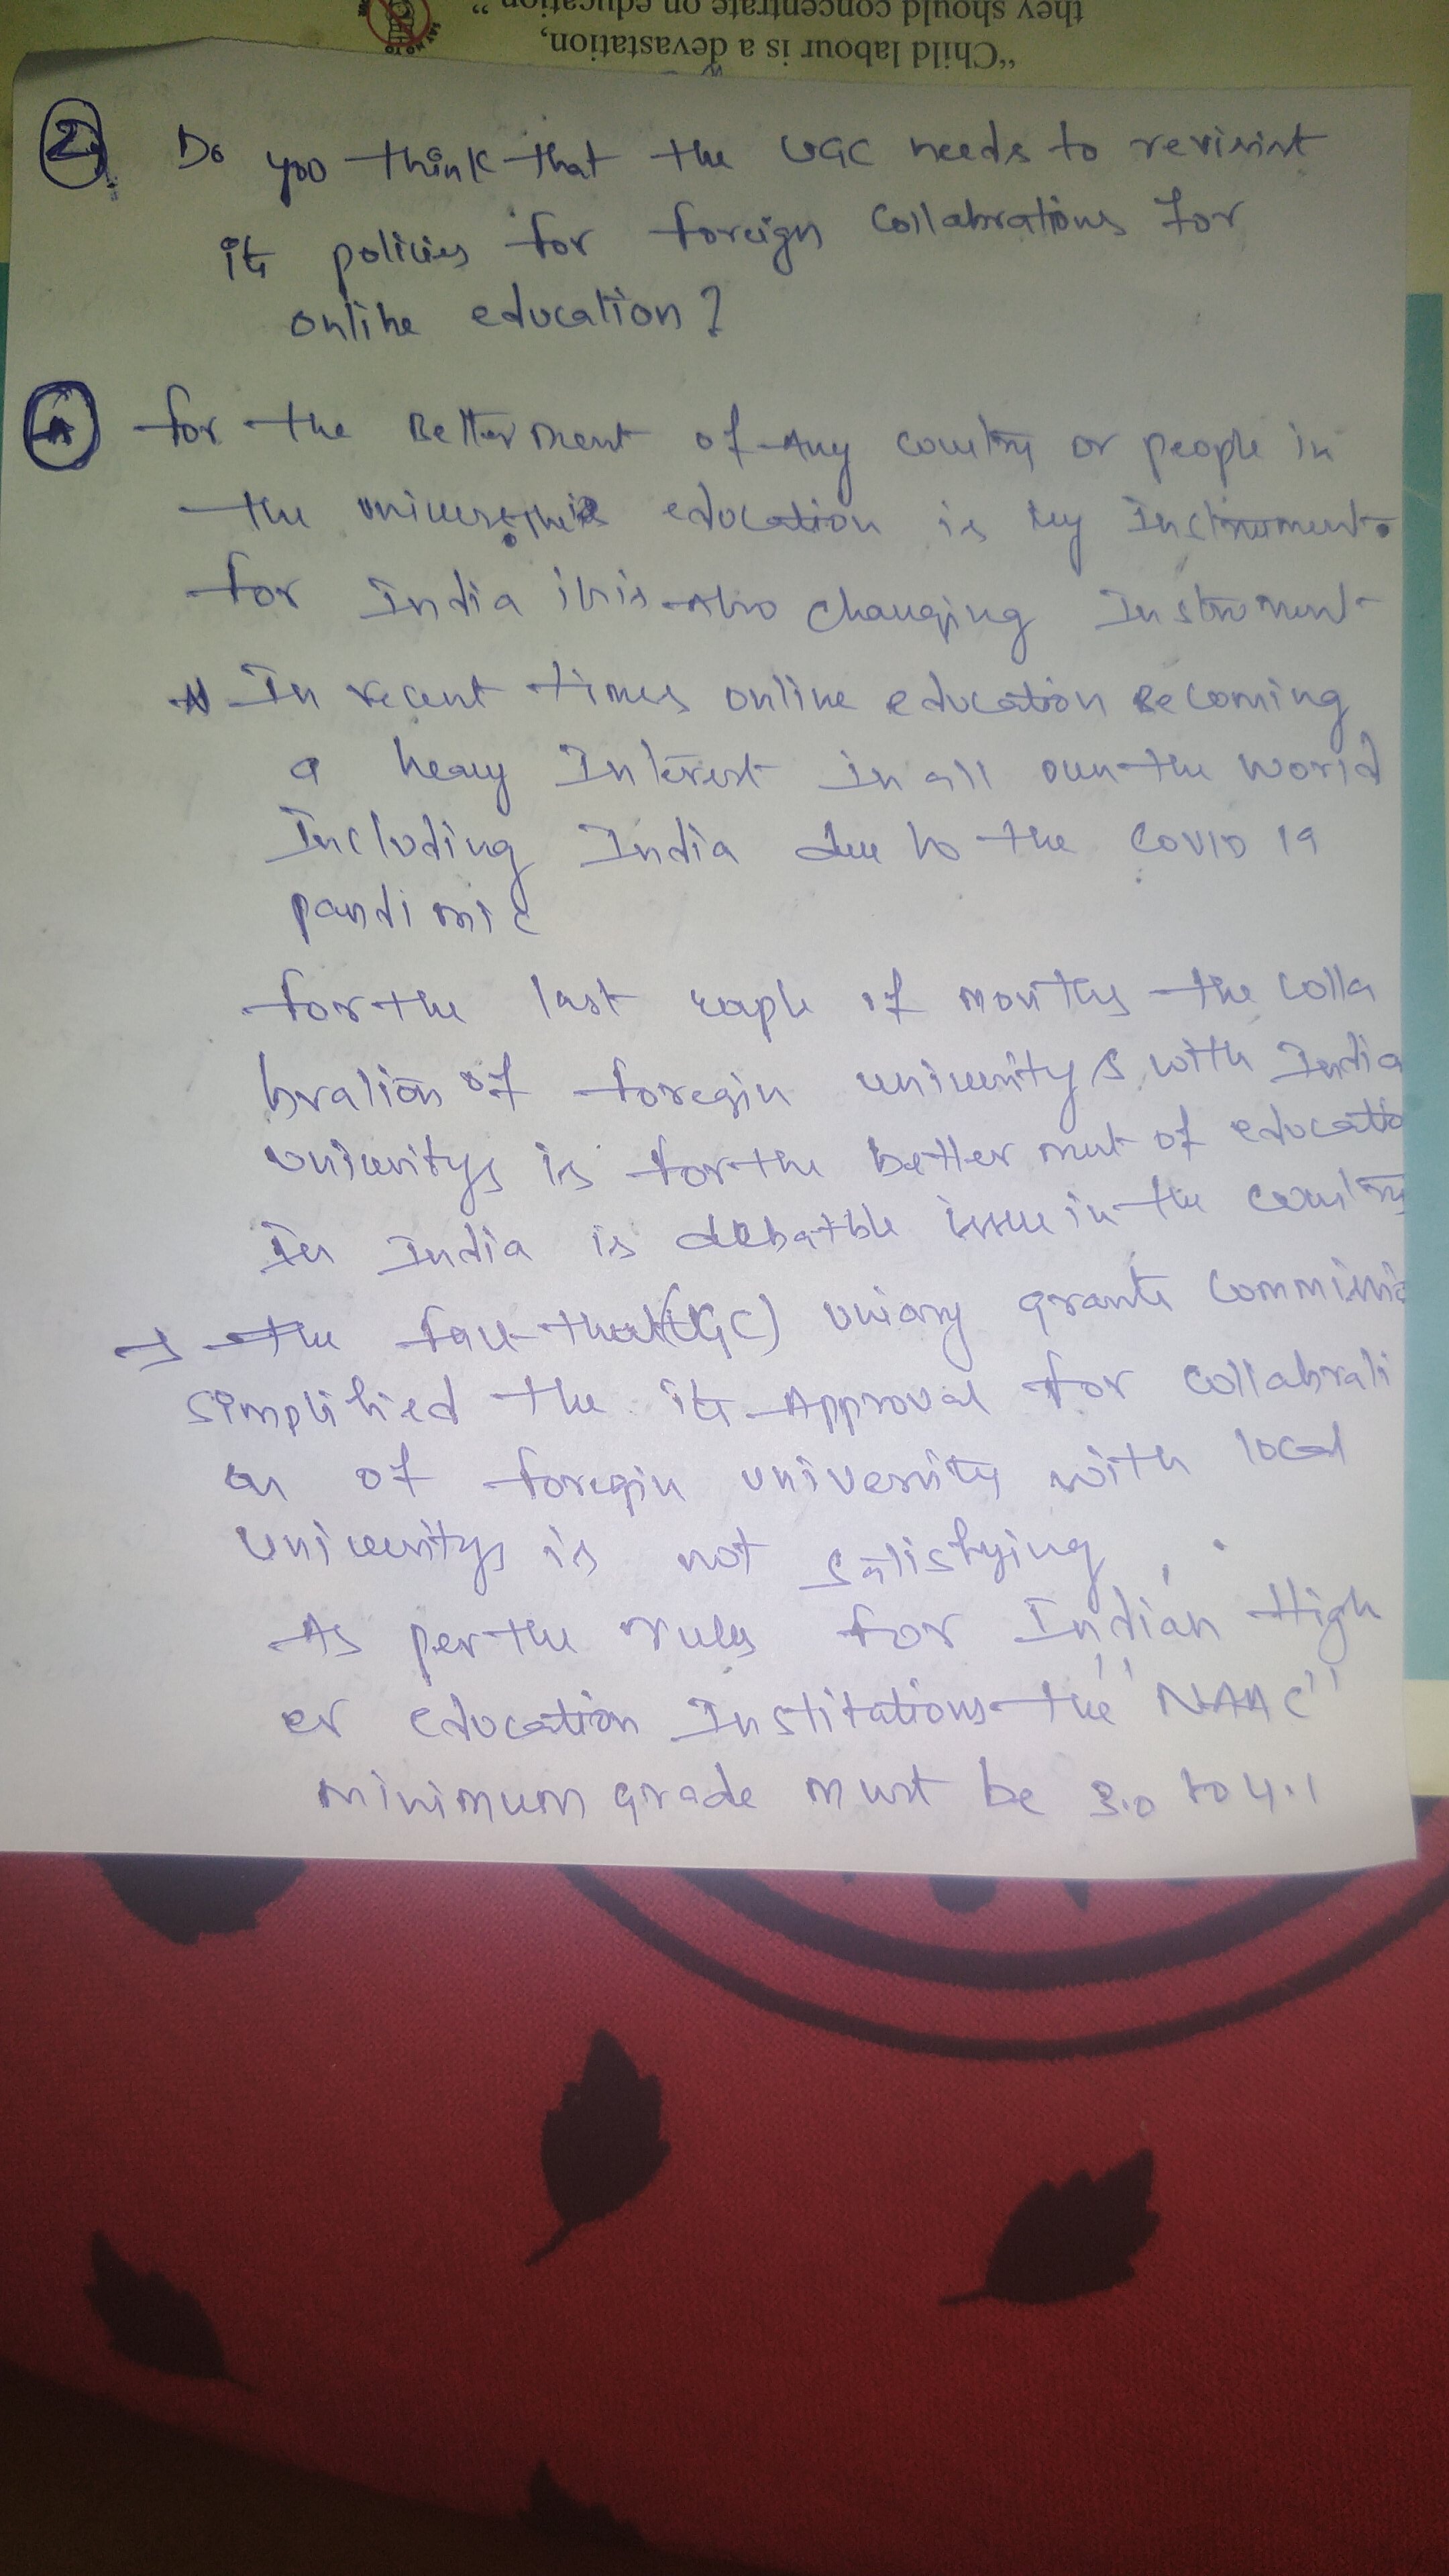 they should concentrate on education"
"Child labour is a devastation,
SAY NO TO
2) Do you think that the UGC needs to revisist
its policies for foreign collabrations for
online education?
A for the Betterment of Any country or people in
the education is key Instrument.
for India it is Also changing Instrument
In recent times online education Becoming
a heavy Interest in all over the world
Including India due to the COVID 19
pandimic
for the last couple of months the colla
bration of foregin universitys with India
universitys is for the betterment of educatio
In India is debatble issue in the country
→ the fact that (UGC) grants Commissio
simplified the its Approval for collabrati
on of foregin university with local
universitys is not satisfying.
As per the rules for Indian High
er education Institations the "NAAC"
minimum grade must be 3.0 to 4.1